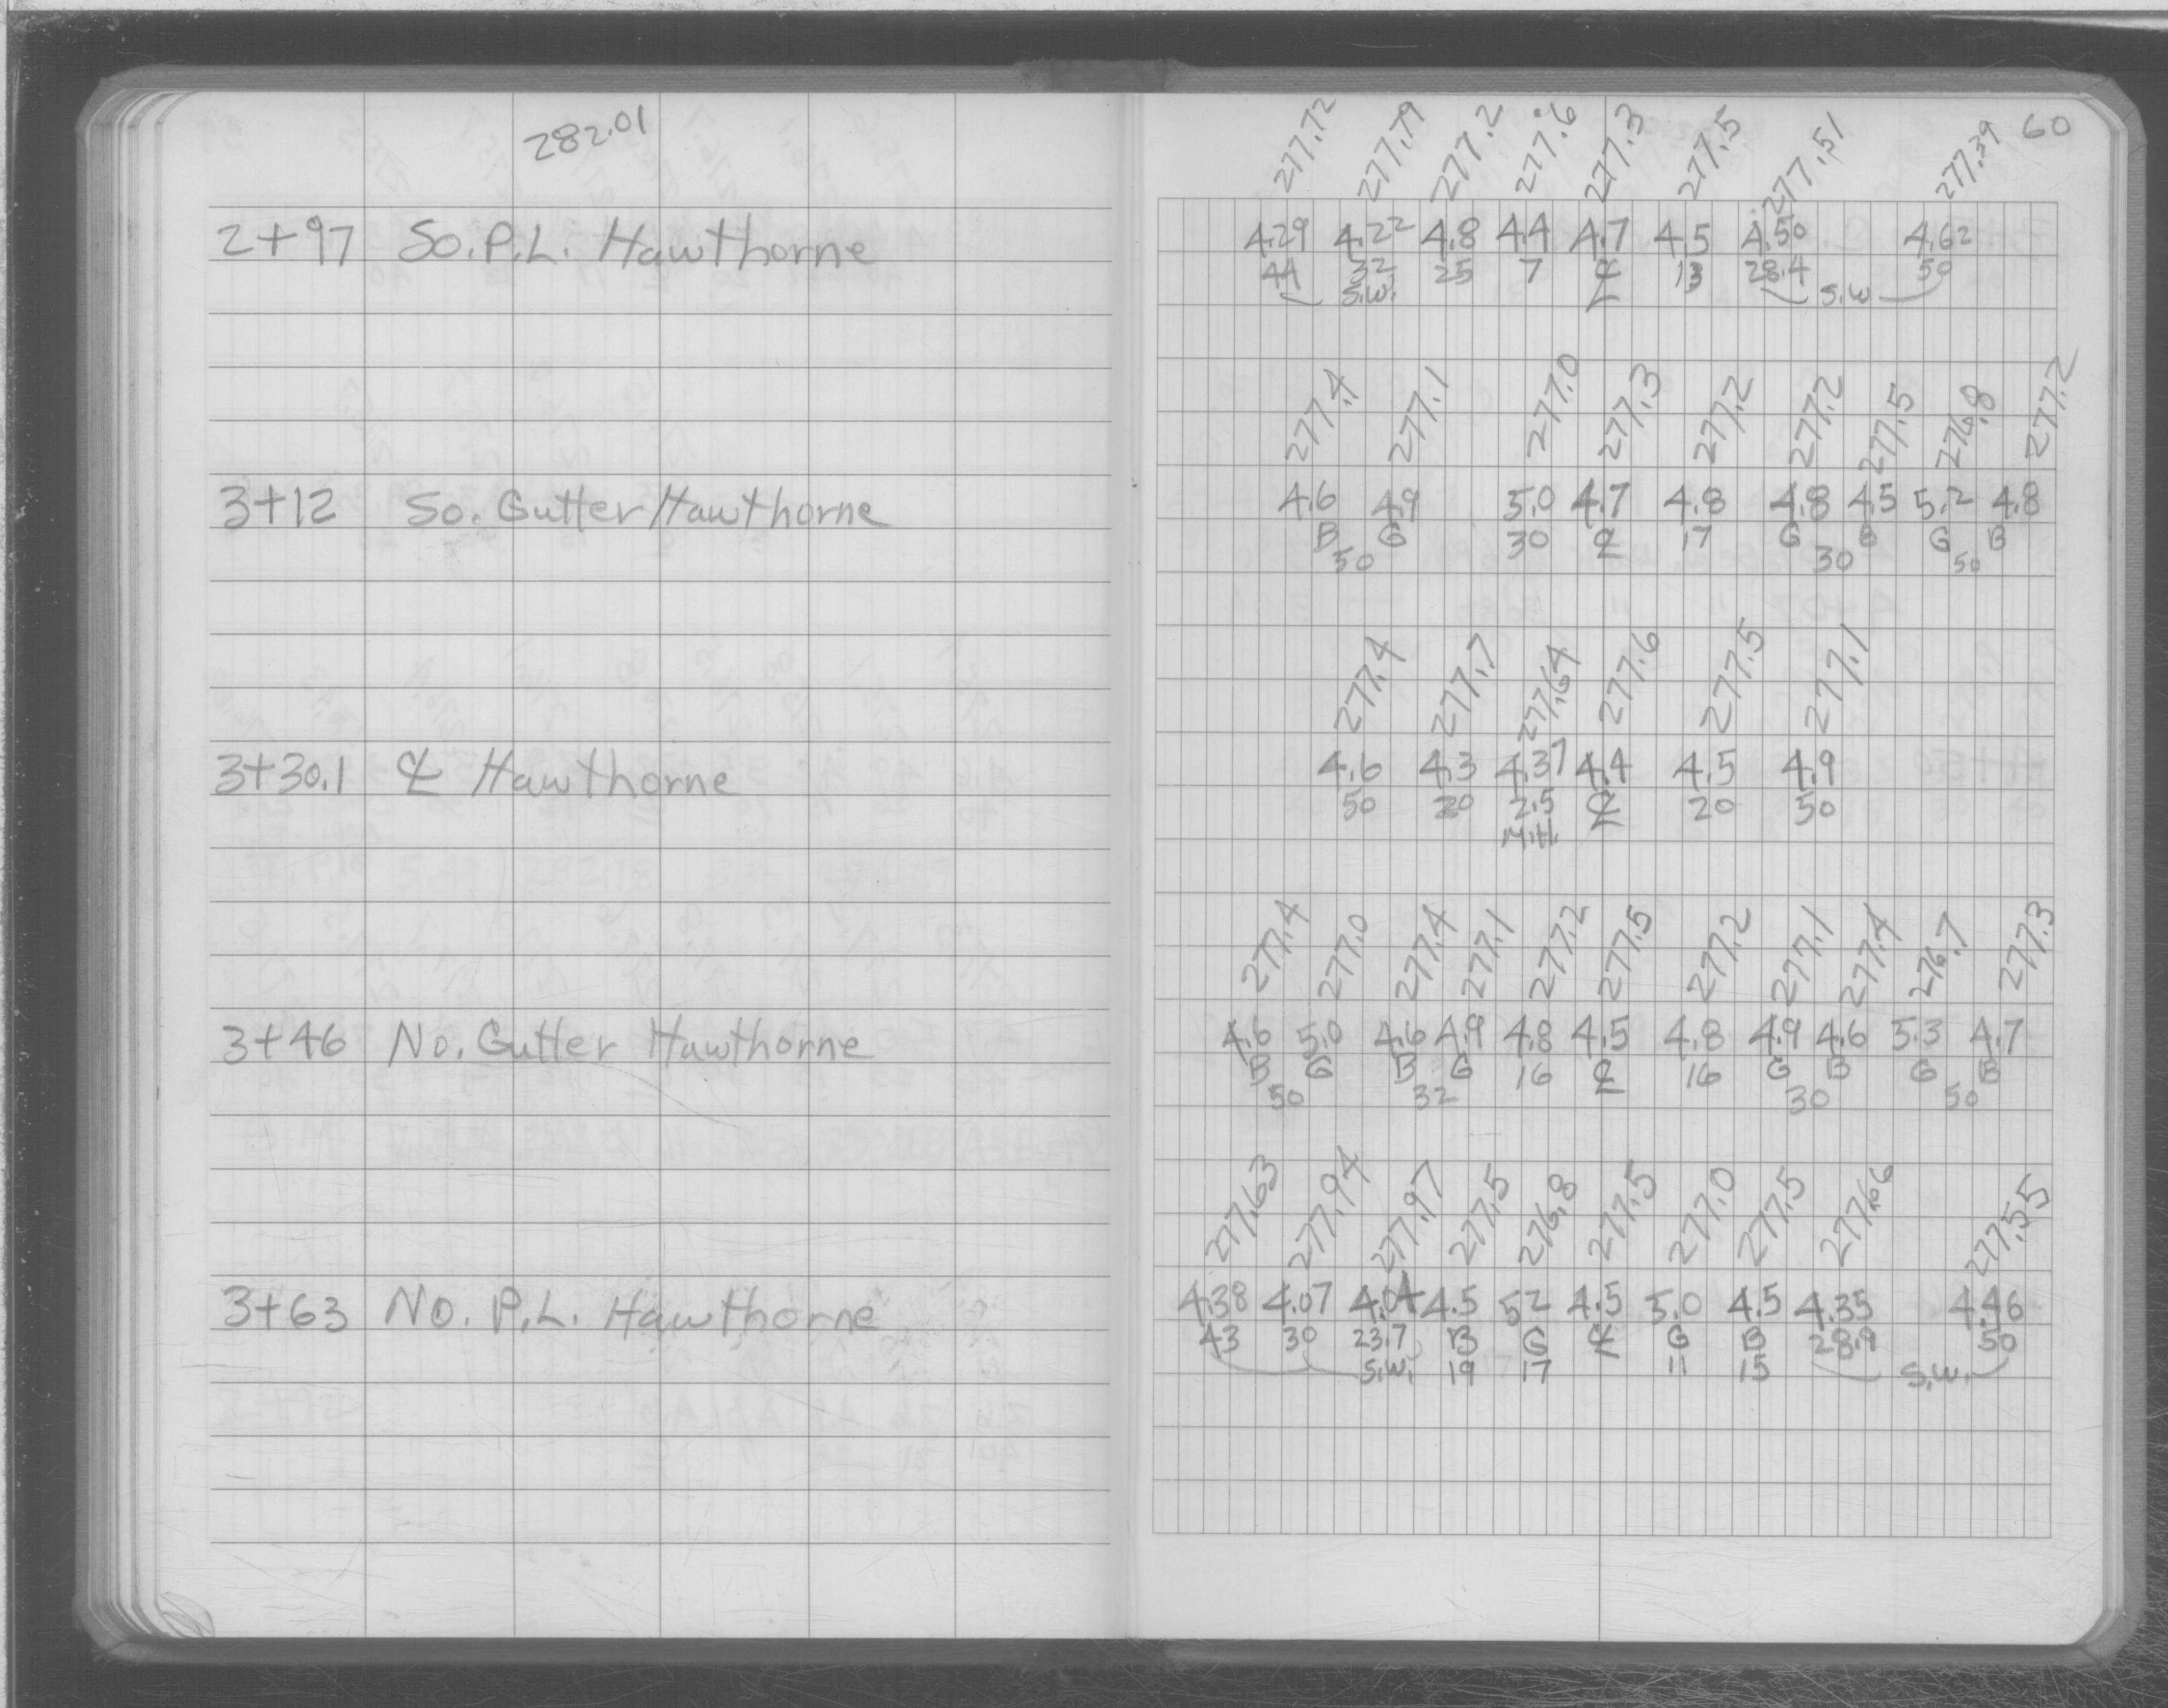 282.01
60
277.72 277.79 277.2 277.6 277.3 277.5 277.51 277.39
2+97 So. P.L. Hawthorne 4.29 4.22 4.8 4.4 4.7 4.5 4.50 4.62
44 32 25 7 ℄ 13 28.4 50
S.W. S.W
277.4 277.1 277.0 277.3 277.2 277.2 277.5 276.8 277.2
3+12 So. Gutter Hawthorne 4.6 4.9 5.0 4.7 4.8 4.8 4.5 5.2 4.8
B G 30 ℄ 17 G B G B
50 30 50
277.4 277.7 277.64 277.6 277.5 277.1
3+30.1 ℄ Hawthorne 4.6 4.3 4.37 4.4 4.5 4.9
50 20 2.5 ℄ 20 50
M.H.
277.4 277.0 277.4 277.1 277.2 277.5 277.2 277.1 277.4 276.7 277.3
3+46 No. Gutter Hawthorne 4.6 5.0 4.6 4.9 4.8 4.5 4.8 4.9 4.6 5.3 4.7
B G B G 16 ℄ 16 G B G B
50 32 30 50
277.63 277.94 277.97 277.5 276.8 277.5 277.0 277.5 277.66 277.55
3+63 No. P.L. Hawthorne 4.38 4.07 4.04 4.5 52 4.5 5.0 4.5 4.35 4.46
43 30 23.7 B G ℄ G B 28.9 50
S.W. 19 17 11 15 S.W.